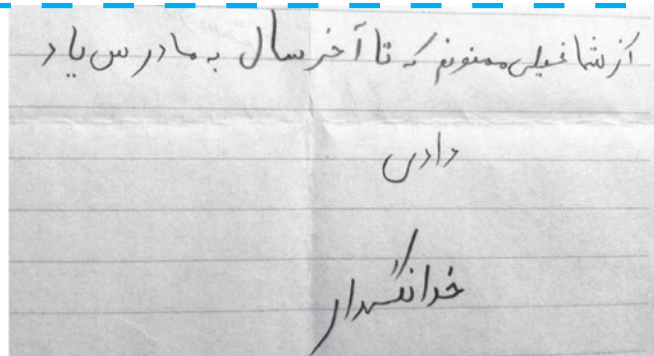 از شما خیلی ممنونم که تا آخر سال به ما درس یاد
دادی
خدانگهدار